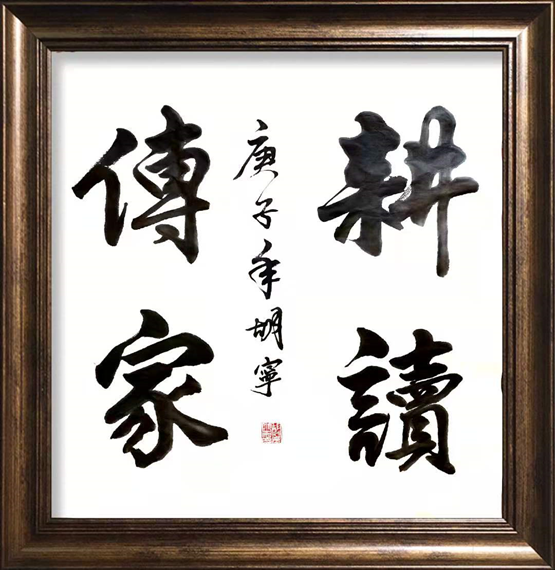 耕讀
傳家
庚子年胡寧